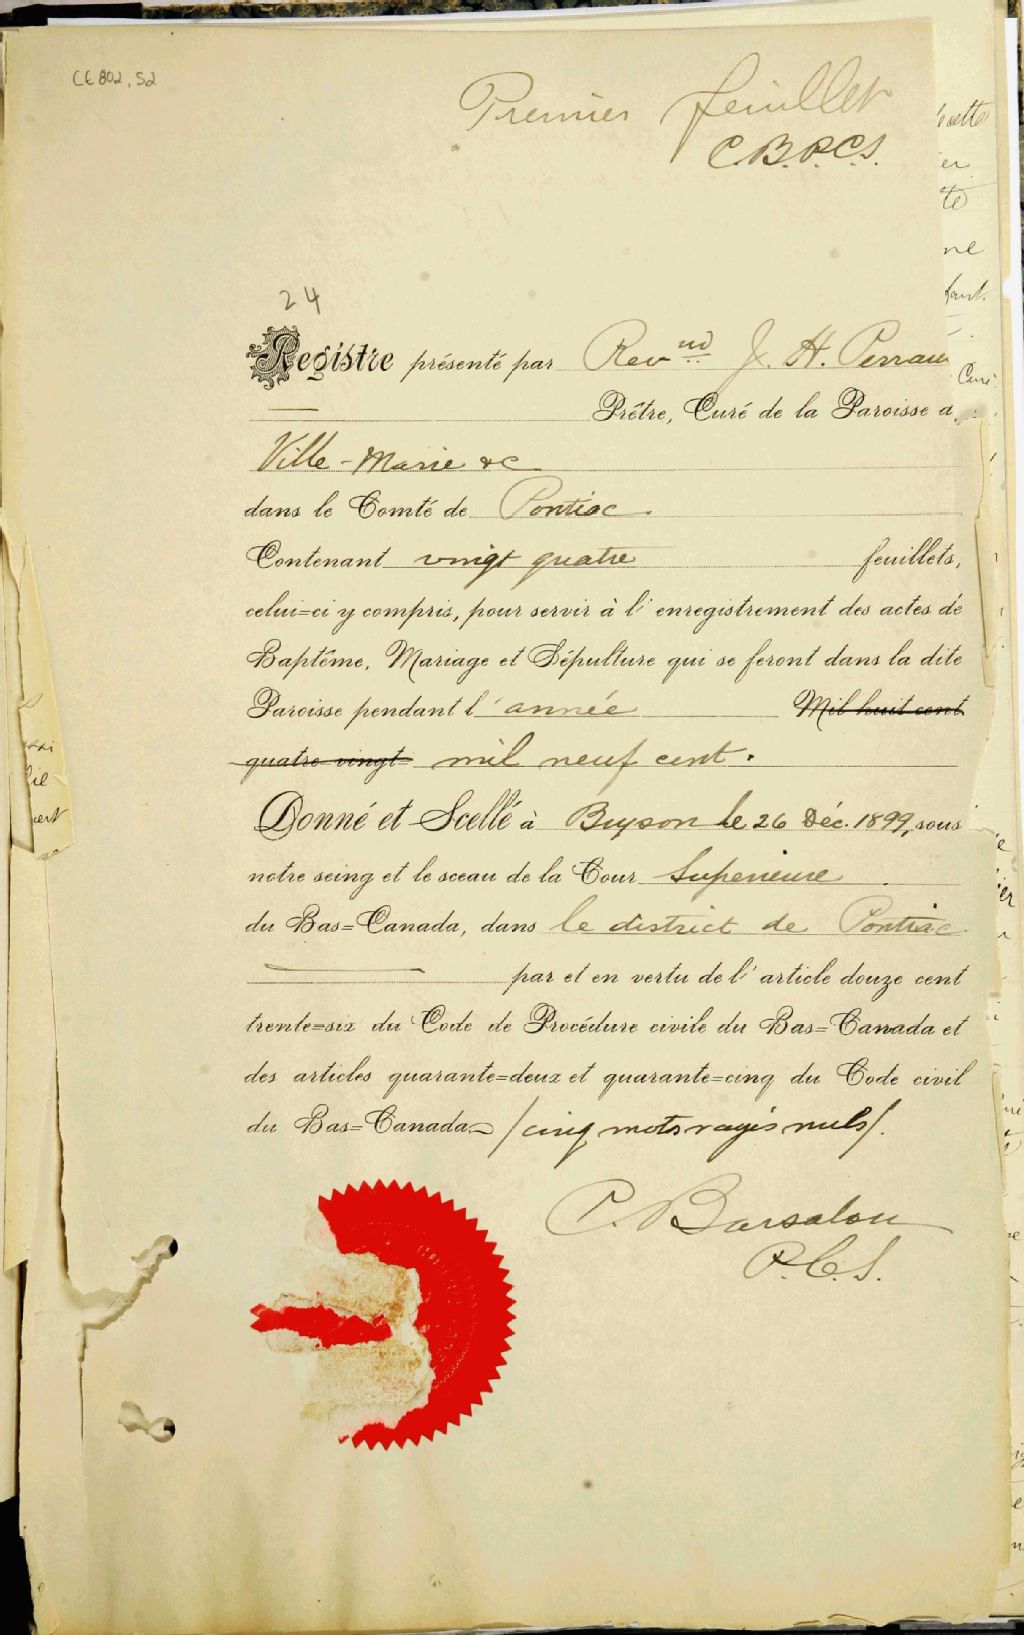 CE 802, S2
Premier feuillet
C.B.P.C.S.
24
Registre présenté par Rev nd J. H. Perrau
Curé
Prêtre, Curé de la Paroisse d
Ville-Marie &c
dans le Comté de Pontiac.
Contenant vingt quatre feuillets,
celui=ci y compris, pour servir à l'enregistrement des actes de
Baptême, Mariage et Sépulture qui se feront dans la dite
Paroisse pendant l'année Mil huit cent
quatre vingt= mil neuf cent.
Donné et Scellé à Bryson le 26 Déc. 1899, sous
notre seing et le sceau de la Cour Superieure
du Bas=Canada, dans le district de Pontiac
par et en vertu de l'article douze cent
trente=six du Code de Procédure civile du Bas=Canada et
des articles quarante=deux et quarante=cinq du Code civil
du Bas=Canada /cinq mots rayés nuls/.
P. Barsalou
P.C.S.